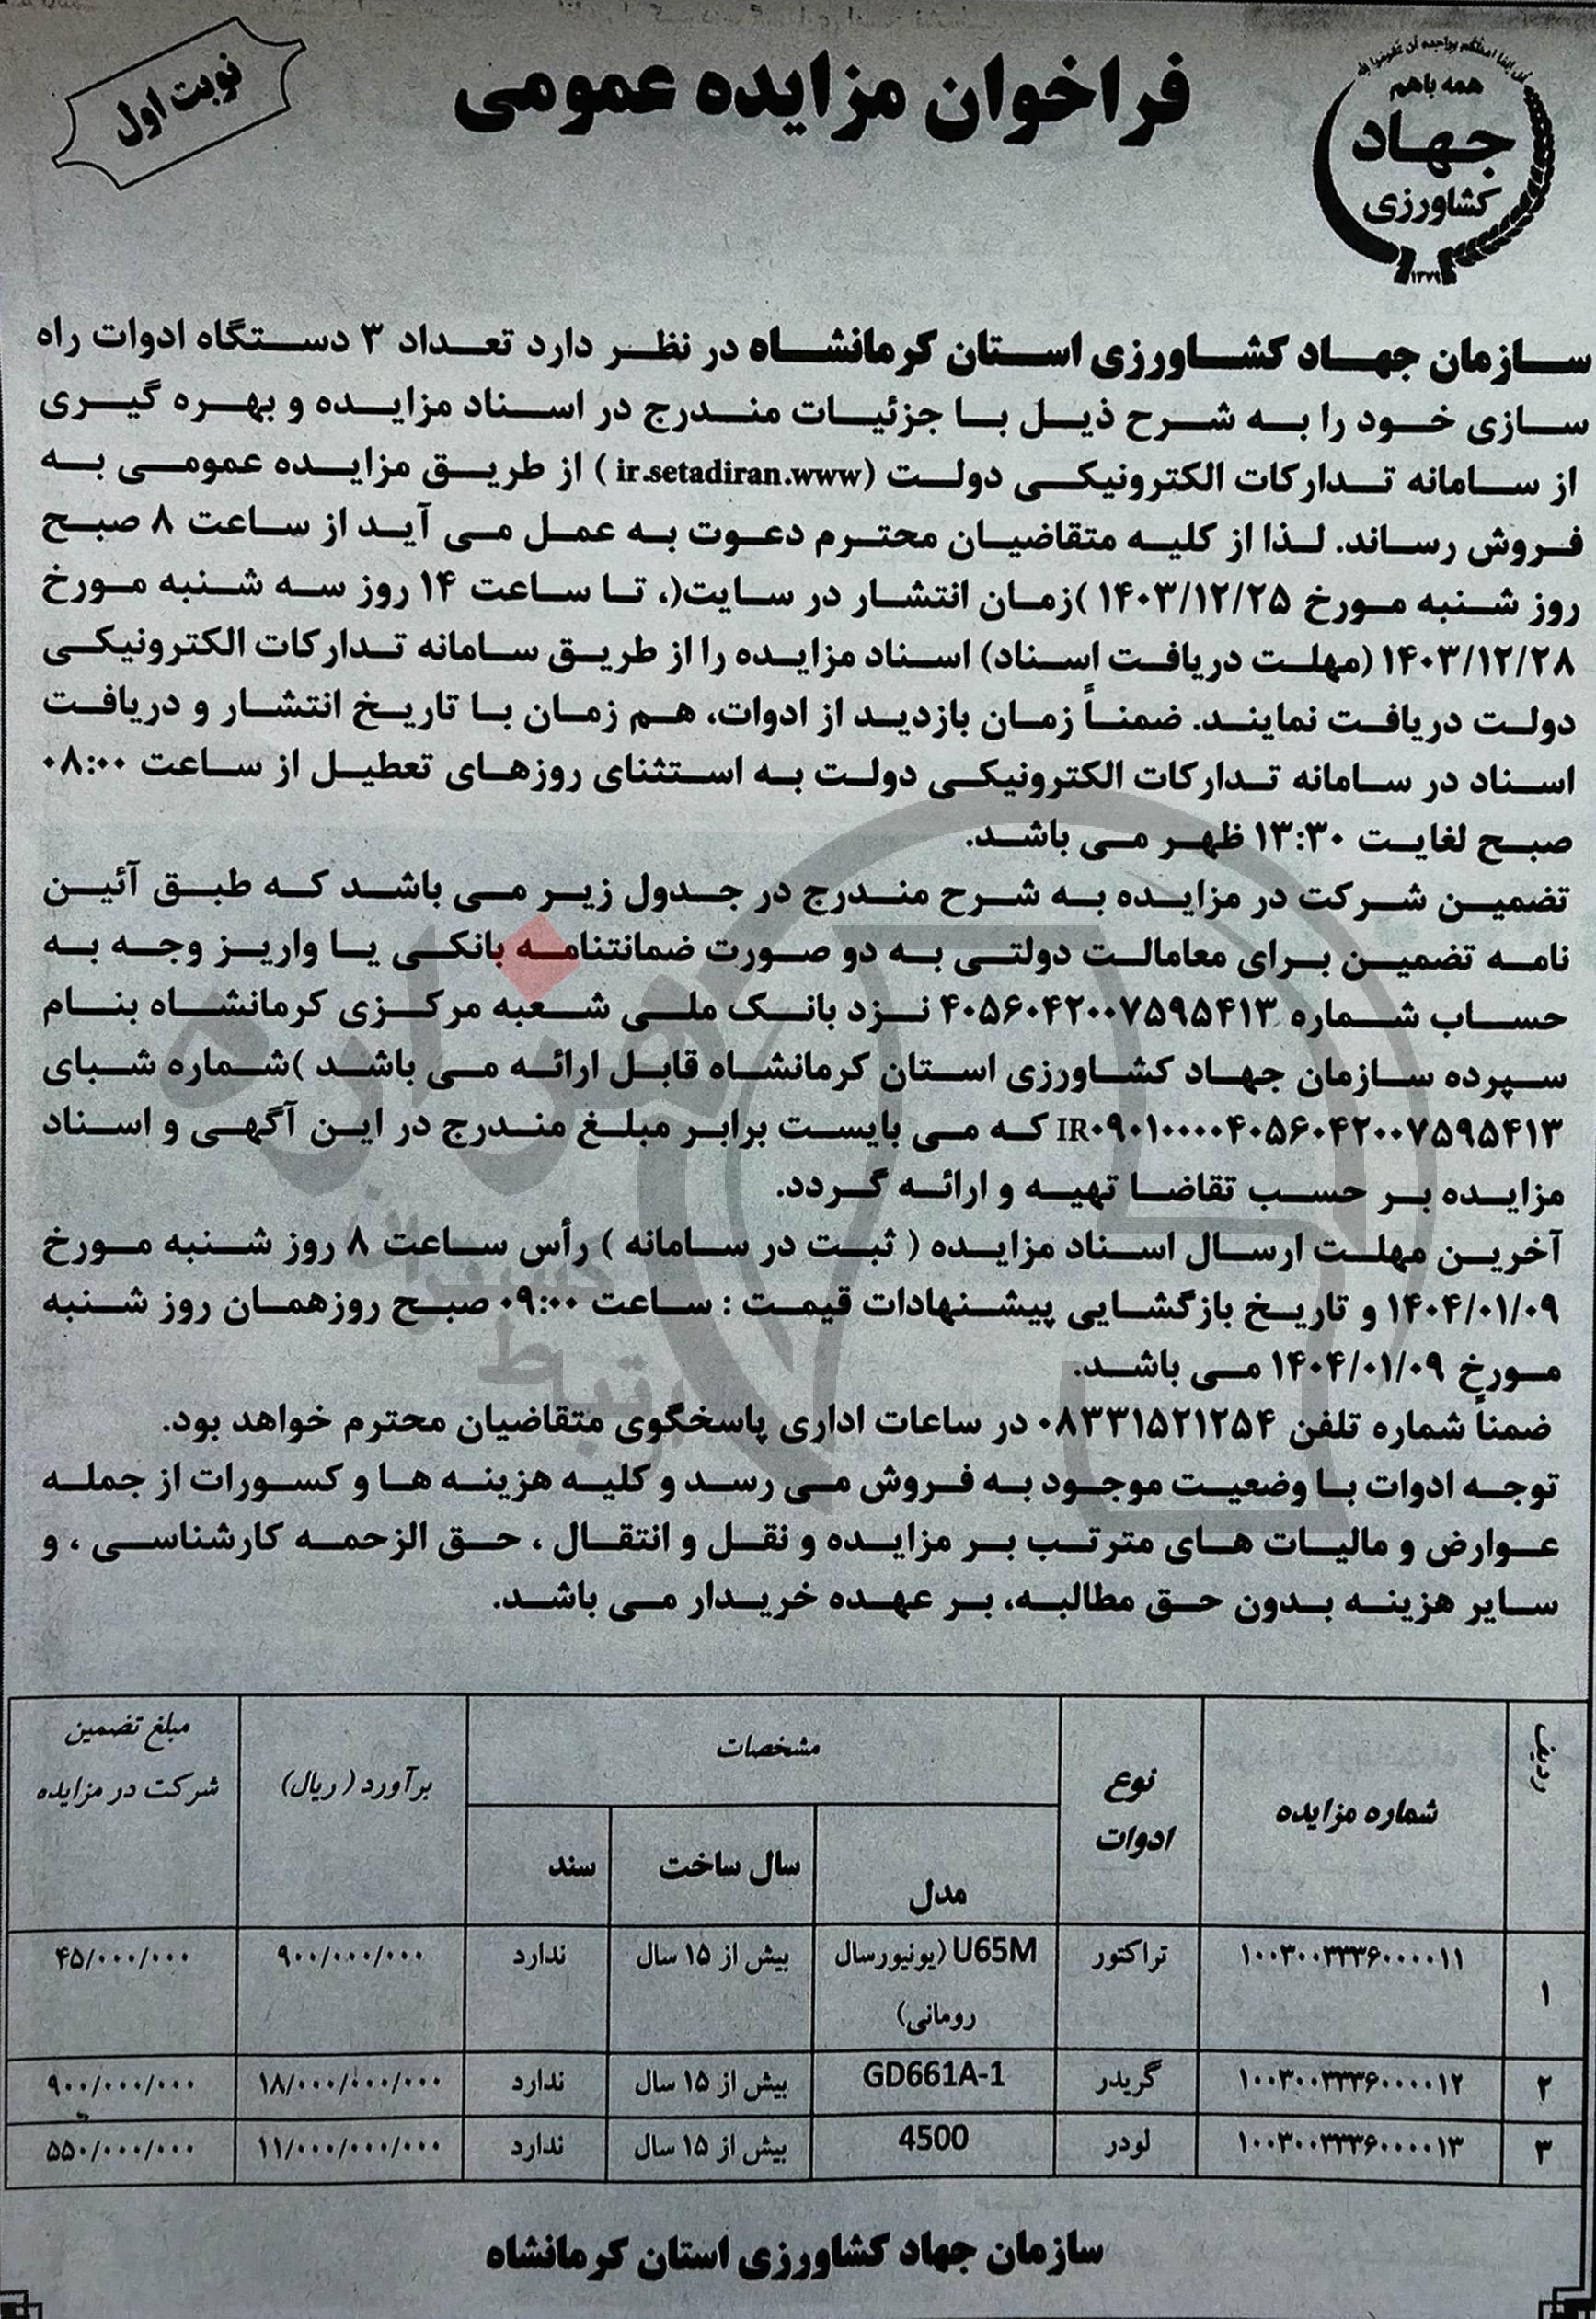 فراخوان مزایده عمومی
نوبت اول
همه باهم
جهاد
کشاورزی
۱۳۷۹
سازمان جهاد کشاورزی استان کرمانشاه در نظر دارد تعداد ۳ دستگاه ادوات راه
سازی خود را به شرح ذیل با جزئیات مندرج در اسناد مزایده و بهره گیری
از سامانه تدارکات الکترونیکی دولت (ir.setadiran.www) از طریق مزایده عمومی به
فروش رساند. لذا از کلیه متقاضیان محترم دعوت به عمل می آید از ساعت ۸ صبح
روز شنبه مورخ ۱۴۰۳/۱۲/۲۵ )زمان انتشار در سایت(، تا ساعت ۱۴ روز سه شنبه مورخ
۱۴۰۳/۱۲/۲۸ (مهلت دریافت اسناد) اسناد مزایده را از طریق سامانه تدارکات الکترونیکی
دولت دریافت نمایند. ضمناً زمان بازدید از ادوات، هم زمان با تاریخ انتشار و دریافت
اسناد در سامانه تدارکات الکترونیکی دولت به استثنای روزهای تعطیل از ساعت ۰۸:۰۰
صبح لغایت ۱۳:۳۰ ظهر می باشد.
تضمین شرکت در مزایده به شرح مندرج در جدول زیر می باشد که طبق آئین
نامه تضمین برای معاملات دولتی به دو صورت ضمانتنامه بانکی یا واریز وجه به
حساب شماره ۴۰۵۶۰۴۲۰۰۷۵۹۵۴۱۳ نزد بانک ملی شعبه مرکزی کرمانشاه بنام
سپرده سازمان جهاد کشاورزی استان کرمانشاه قابل ارائه می باشد )شماره شبای
IR۰۹۰۱۰۰۰۰۴۰۵۶۰۴۲۰۰۷۵۹۵۴۱۳ که می بایست برابر مبلغ مندرج در این آگهی و اسناد
مزایده بر حسب تقاضا تهیه و ارائه گردد.
آخرین مهلت ارسال اسناد مزایده ( ثبت در سامانه ) رأس ساعت ۸ روز شنبه مورخ
۱۴۰۴/۰۱/۰۹ و تاریخ بازگشایی پیشنهادات قیمت : ساعت ۰۹:۰۰ صبح روزهمان روز شنبه
مورخ ۱۴۰۴/۰۱/۰۹ می باشد.
ضمناً شماره تلفن ۰۸۳۳۱۵۲۱۲۵۴ در ساعات اداری پاسخگوی متقاضیان محترم خواهد بود.
توجه ادوات با وضعیت موجود به فروش می رسد و کلیه هزینه ها و کسورات از جمله
عوارض و مالیات های مترتب بر مزایده و نقل و انتقال ، حق الزحمه کارشناسی ، و
سایر هزینه بدون حق مطالبه، بر عهده خریدار می باشد.
ردیف شماره مزایده نوع ادوات مشخصات برآورد (ریال) مبلغ تضمین شرکت در مزایده
مدل سال ساخت سند
۱ ۱۰۰۳۰۰۳۳۳۶۰۰۰۰۱۱ تراکتور U65M (یونیورسال رومانی) بیش از ۱۵ سال ندارد ۹۰۰/۰۰۰/۰۰۰ ۴۵/۰۰۰/۰۰۰
۲ ۱۰۰۳۰۰۳۳۳۶۰۰۰۰۱۲ گریدر GD661A-1 بیش از ۱۵ سال ندارد ۱۸/۰۰۰/۰۰۰/۰۰۰ ۹۰۰/۰۰۰/۰۰۰
۳ ۱۰۰۳۰۰۳۳۳۶۰۰۰۰۱۳ لودر 4500 بیش از ۱۵ سال ندارد ۱۱/۰۰۰/۰۰۰/۰۰۰ ۵۵۰/۰۰۰/۰۰۰
سازمان جهاد کشاورزی استان کرمانشاه